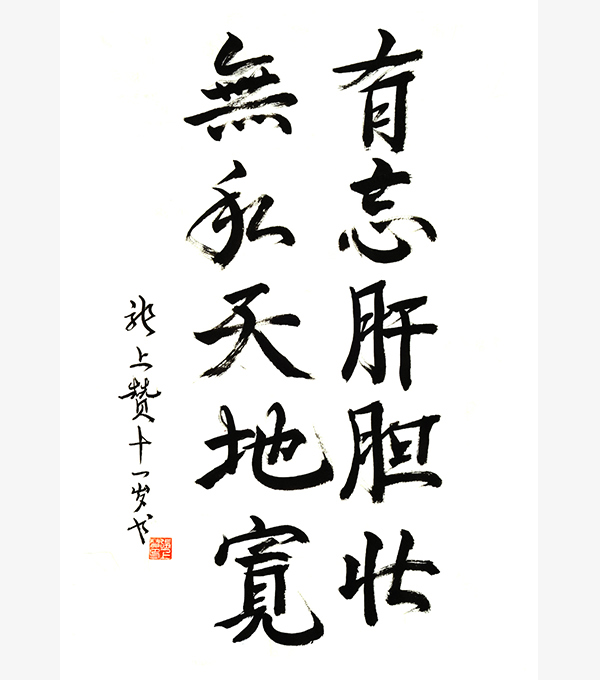 有忘肝胆壮
無私天地寬
上赞十一岁书